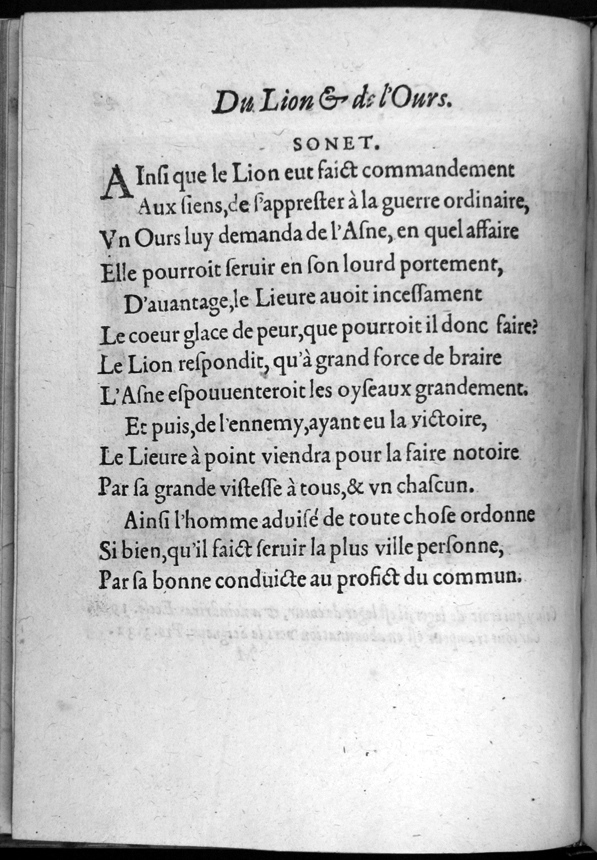 Du Lion & de l'Ours.
SONET.
AInſi que le Lion eut faict commandement
Aux ſiens,de ſ'appreſter à la guerre ordinaire,
Vn Ours luy demanda de l'Aſne, en quel affaire
Elle pourroit ſeruir en ſon lourd portement,
D'auantage,le Lieure auoit inceſſament
Le coeur glace de peur,que pourroit il donc faire?
Le Lion reſpondit, qu'à grand force de braire
L'Aſne eſpouuenteroit les oyſeaux grandement.
Et puis,de l'ennemy,ayant eu la victoire,
Le Lieure à point viendra pour la faire notoire
Par ſa grande viſteſſe à tous,& vn chaſcun.
Ainſi l'homme aduiſé de toute choſe ordonne
Si bien,qu'il faict ſeruir la plus ville perſonne,
Par ſa bonne conduicte au profict du commun.